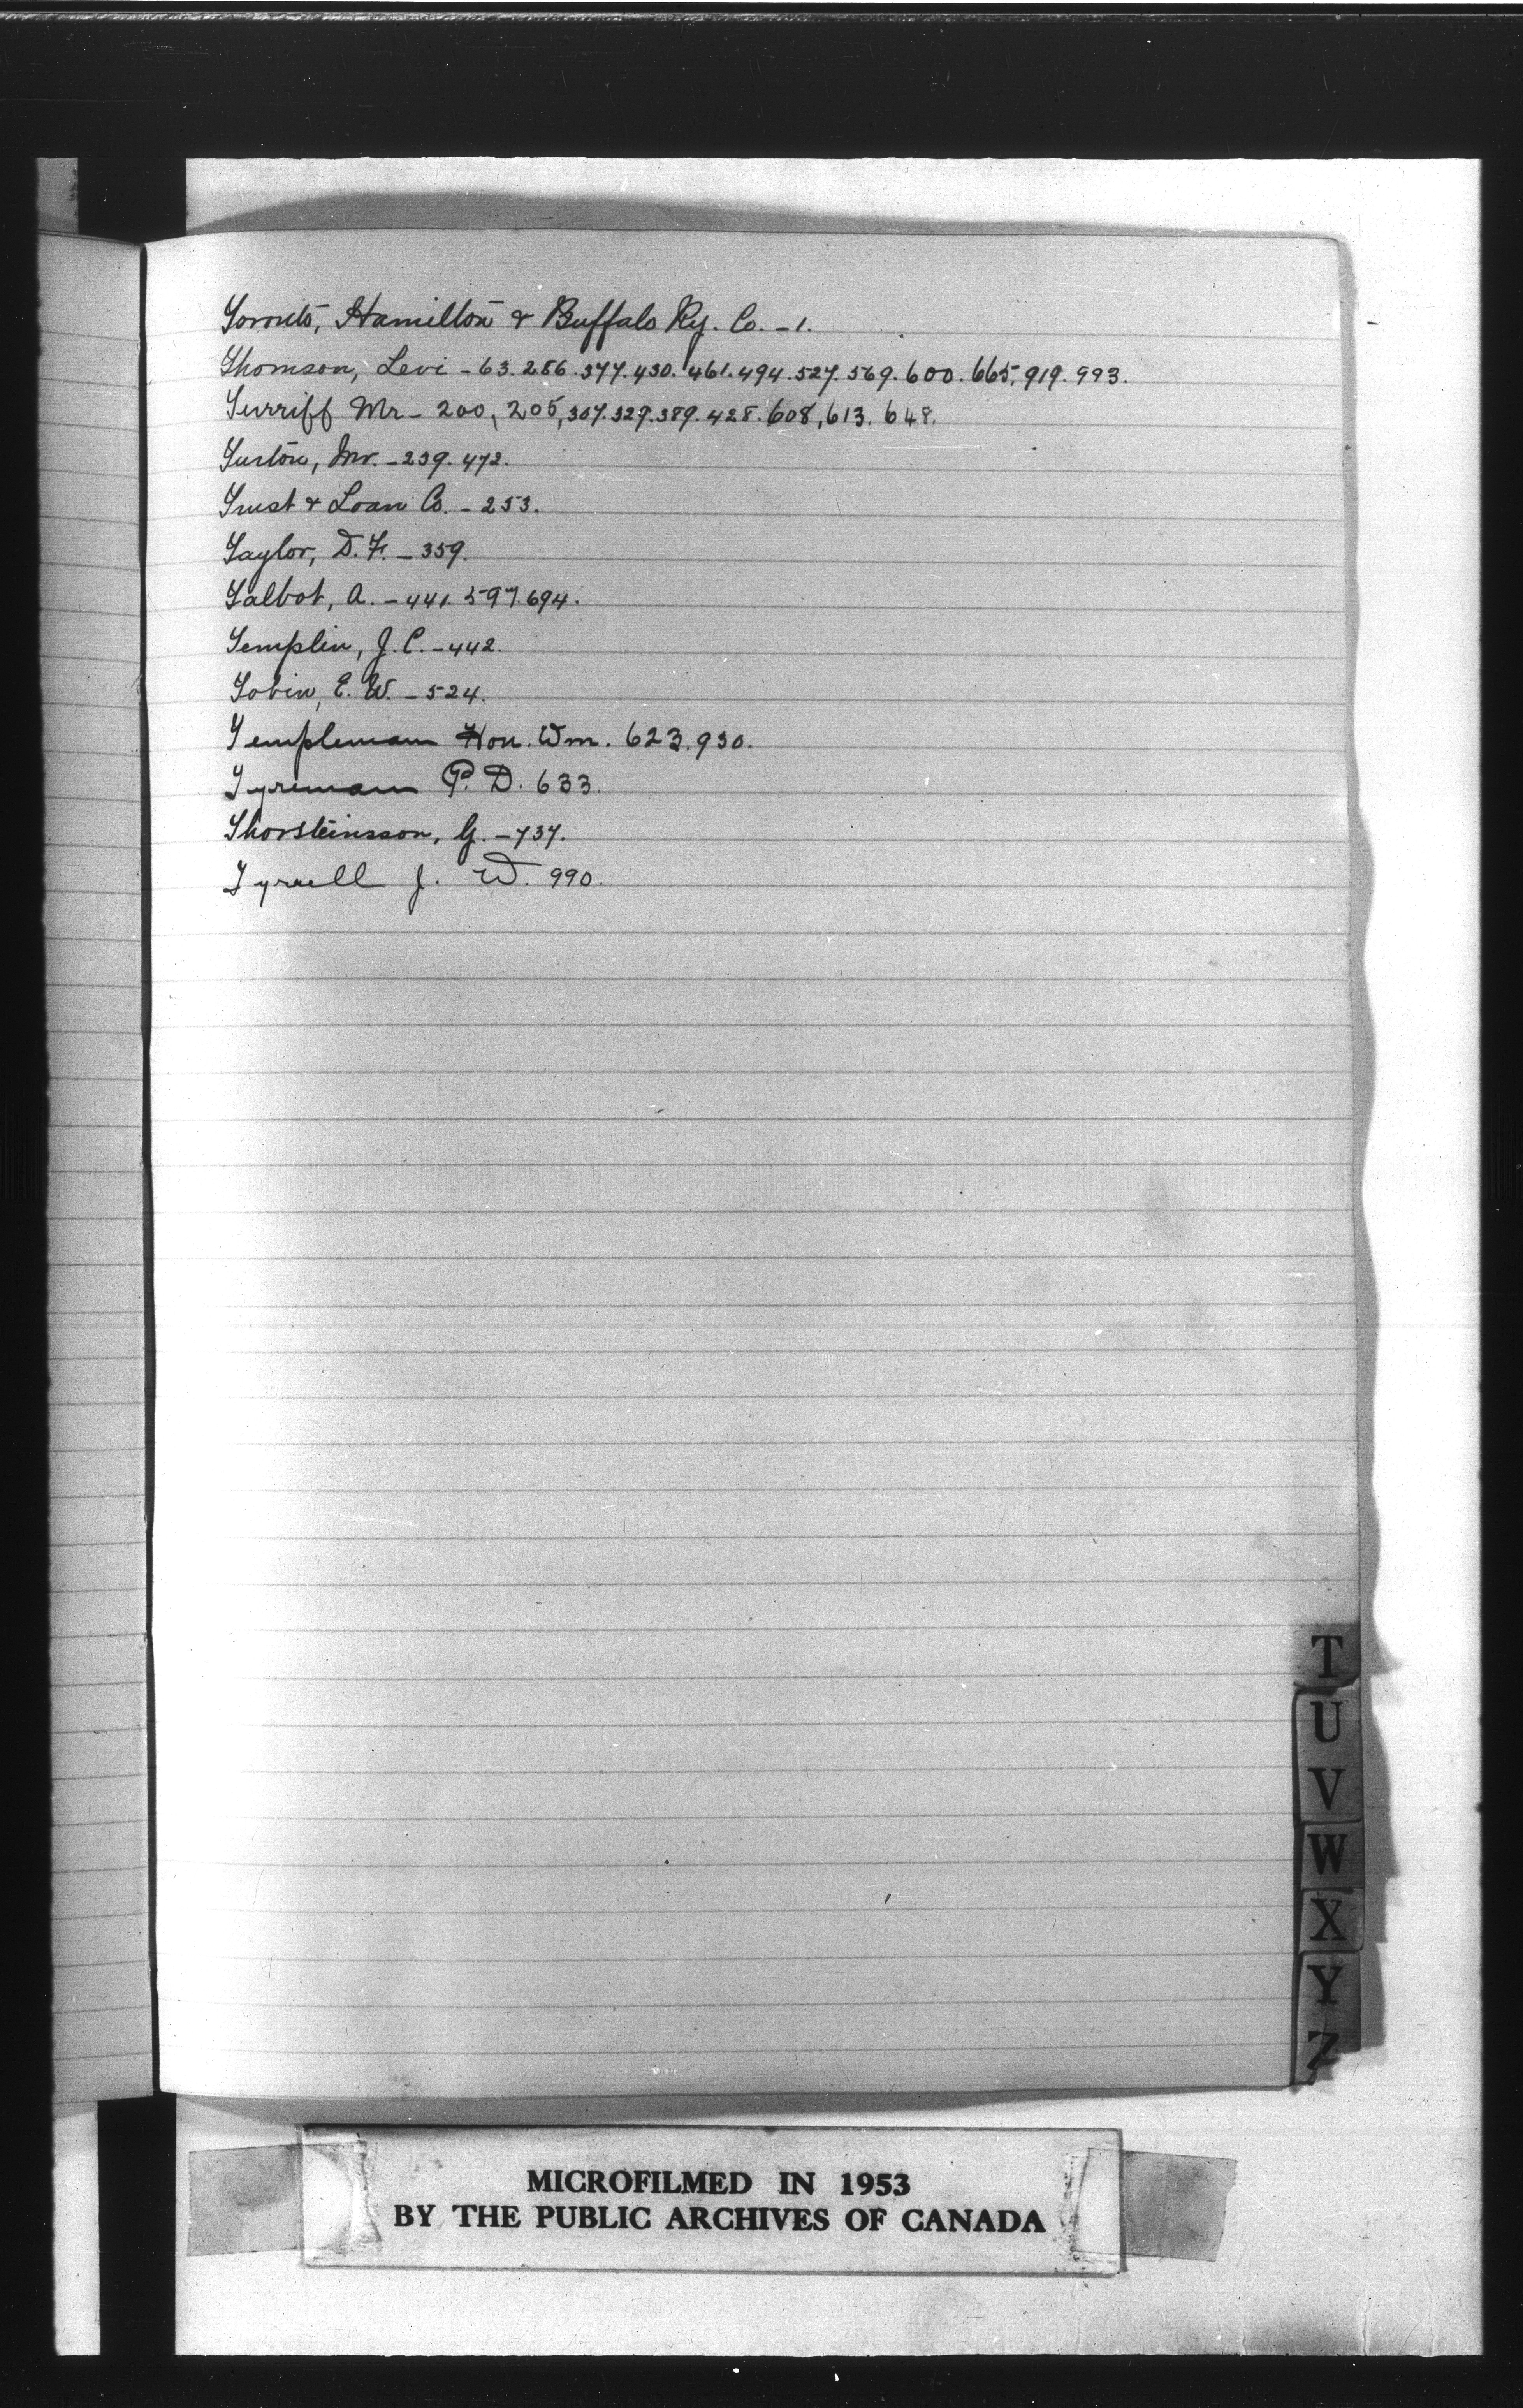 Toronto, Hamilton & Buffalo Ry. Co. - 1.
Thomson, Levi - 63. 286. 377. 430. 461. 494. 527. 569. 600. 665, 919. 993.
Turriff Mr - 200, 205, 307. 329. 389. 428. 608, 613. 648.
Turton, Mr. - 239. 472.
Trust & Loan Co. - 253.
Taylor, D. F. - 359.
Talbot, A. - 441. 597. 694.
Templin, J. C. - 442.
Tobin, E. W. - 524.
Templeman Hon. Wm. 623. 930.
Tyreman P. D. 633.
Thorsteinsson, G. - 737.
Tyrrell J. W. 990.
T
U
V
W
X
Y
Z
MICROFILMED IN 1953
BY THE PUBLIC ARCHIVES OF CANADA